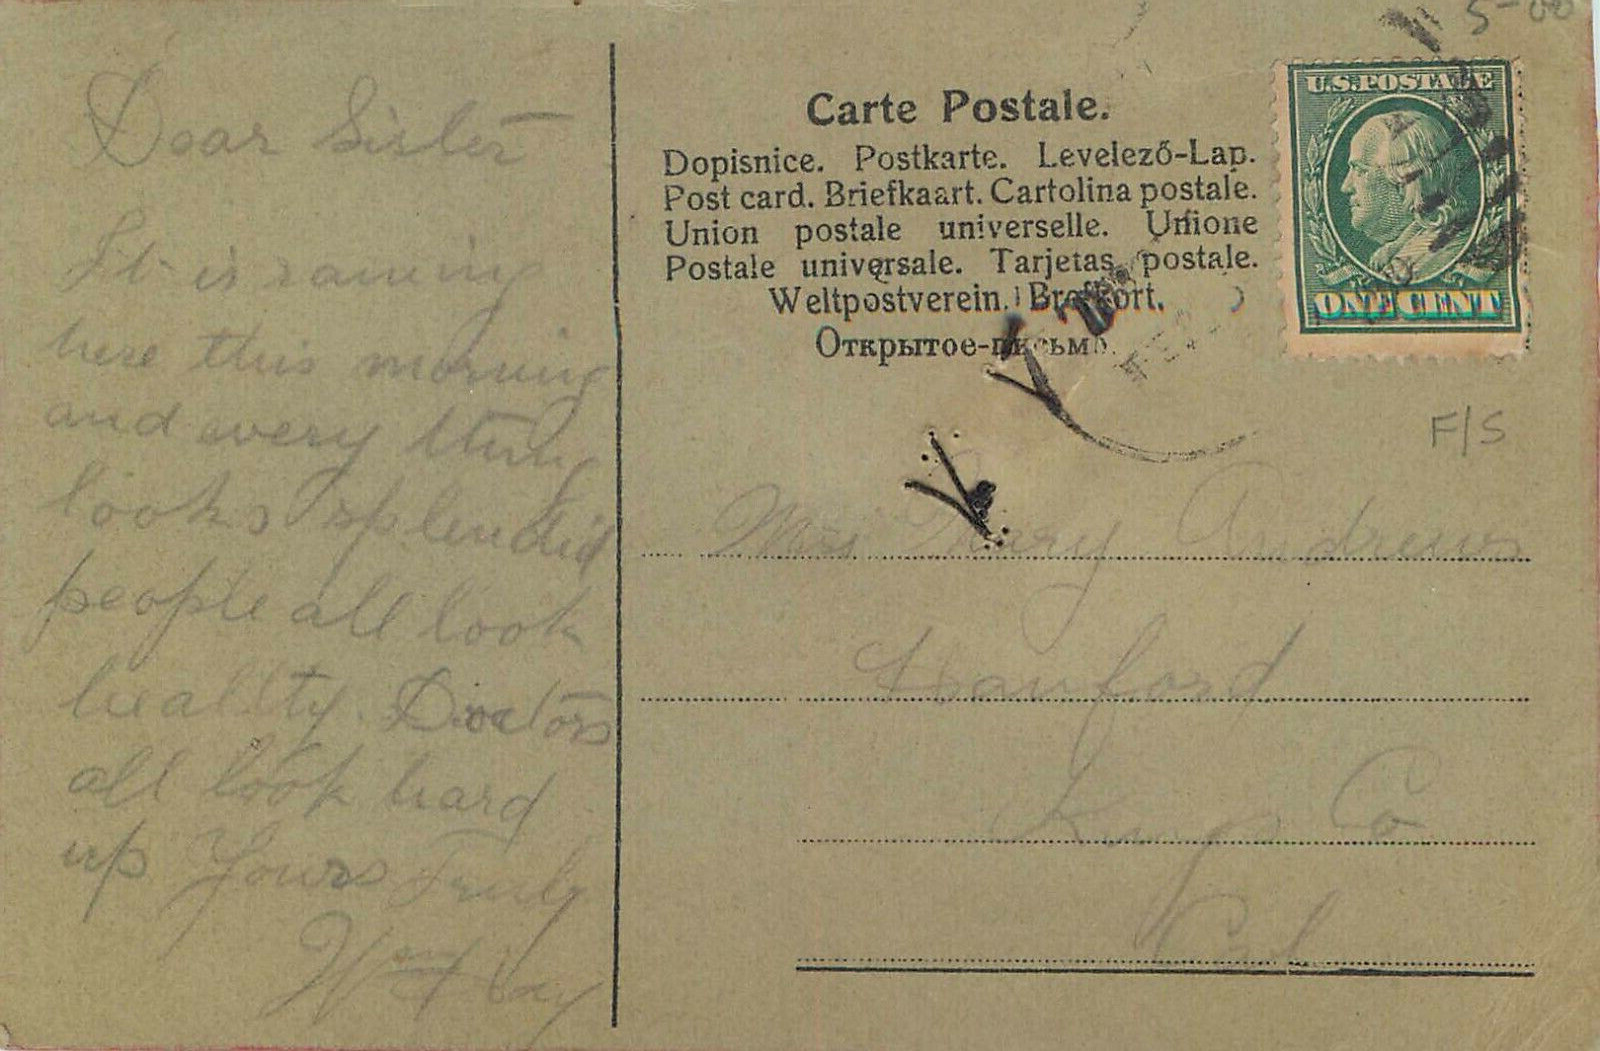 Dear Sister
It is raining
here this morning
and every thing
looks splendid
people all look
healtty. Doctors
all look hard
up Yours Truly
Carte Postale.
Dopisnice. Postkarte. Levelező-Lap.
Post card. Briefkaart. Cartolina postale.
Union postale universelle. Unione
Postale universale. Tarjetas postale.
Weltpostverein. Brefkort.
Открытое-письмо.
U.S. POSTAGE
ONE CENT
5-00
F/S
Mrs Mary Andrews
Hanford
Kings Co
Cal